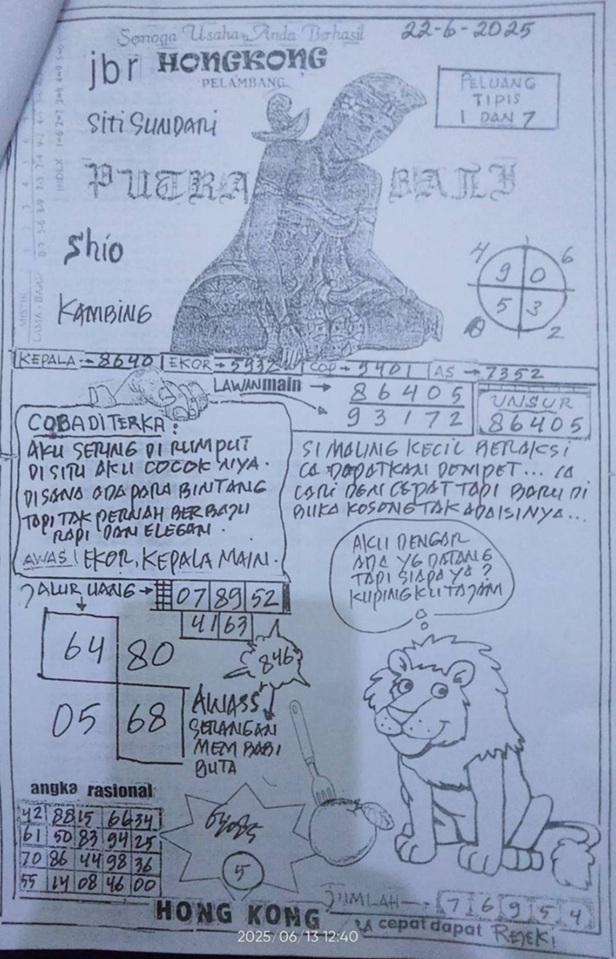 Semoga Usaha Anda Berhasil
22-6-2025
jbr HONGKONG
PELAMBANG
PELUANG
TIPIS
1 DAN 7
SITI SUNDARI
PUTRA BALI
Shio
KAMBING
4 6
9 0
5 3
2
KEPALA → 8640 EKOR → 5932 COP → 9401 AS → 7352
LAWAN main → 86405
93172
UNSUR
86405
COBA DITERKA :
AKU SERING DI RUMPUT
DISITU AKU COCOK NYA.
DISANA ADA PARA BINTANG
TAPI TAK PERNAH BERBAJU
RAPI DAN ELEGAN.
AWAS! EKOR, KEPALA MAIN.
SI MALING KECIL BERAKSI
IA DAPATKAN DOMPET... IA
LARI DEN CEPAT TAPI BARU DI
BUKA KOSONG TAK ADA ISINYA...
AKU DENGAR
ADA YG DATANG
TAPI SIAPA YA?
KUPING KU TAJAM
JALUR UANG → 07 89 52
41 63
64 80
846
05 68
AWASS
SERANGAN
MEMBABI
BUTA
angka rasional
42 88 15 66 34
61 50 83 94 25
70 86 44 98 36
55 14 08 46 00
5
JUMLAH → 7 6 9 5 4
HONG KONG
cepat dapat REJEKI
2025/06/13 12:40